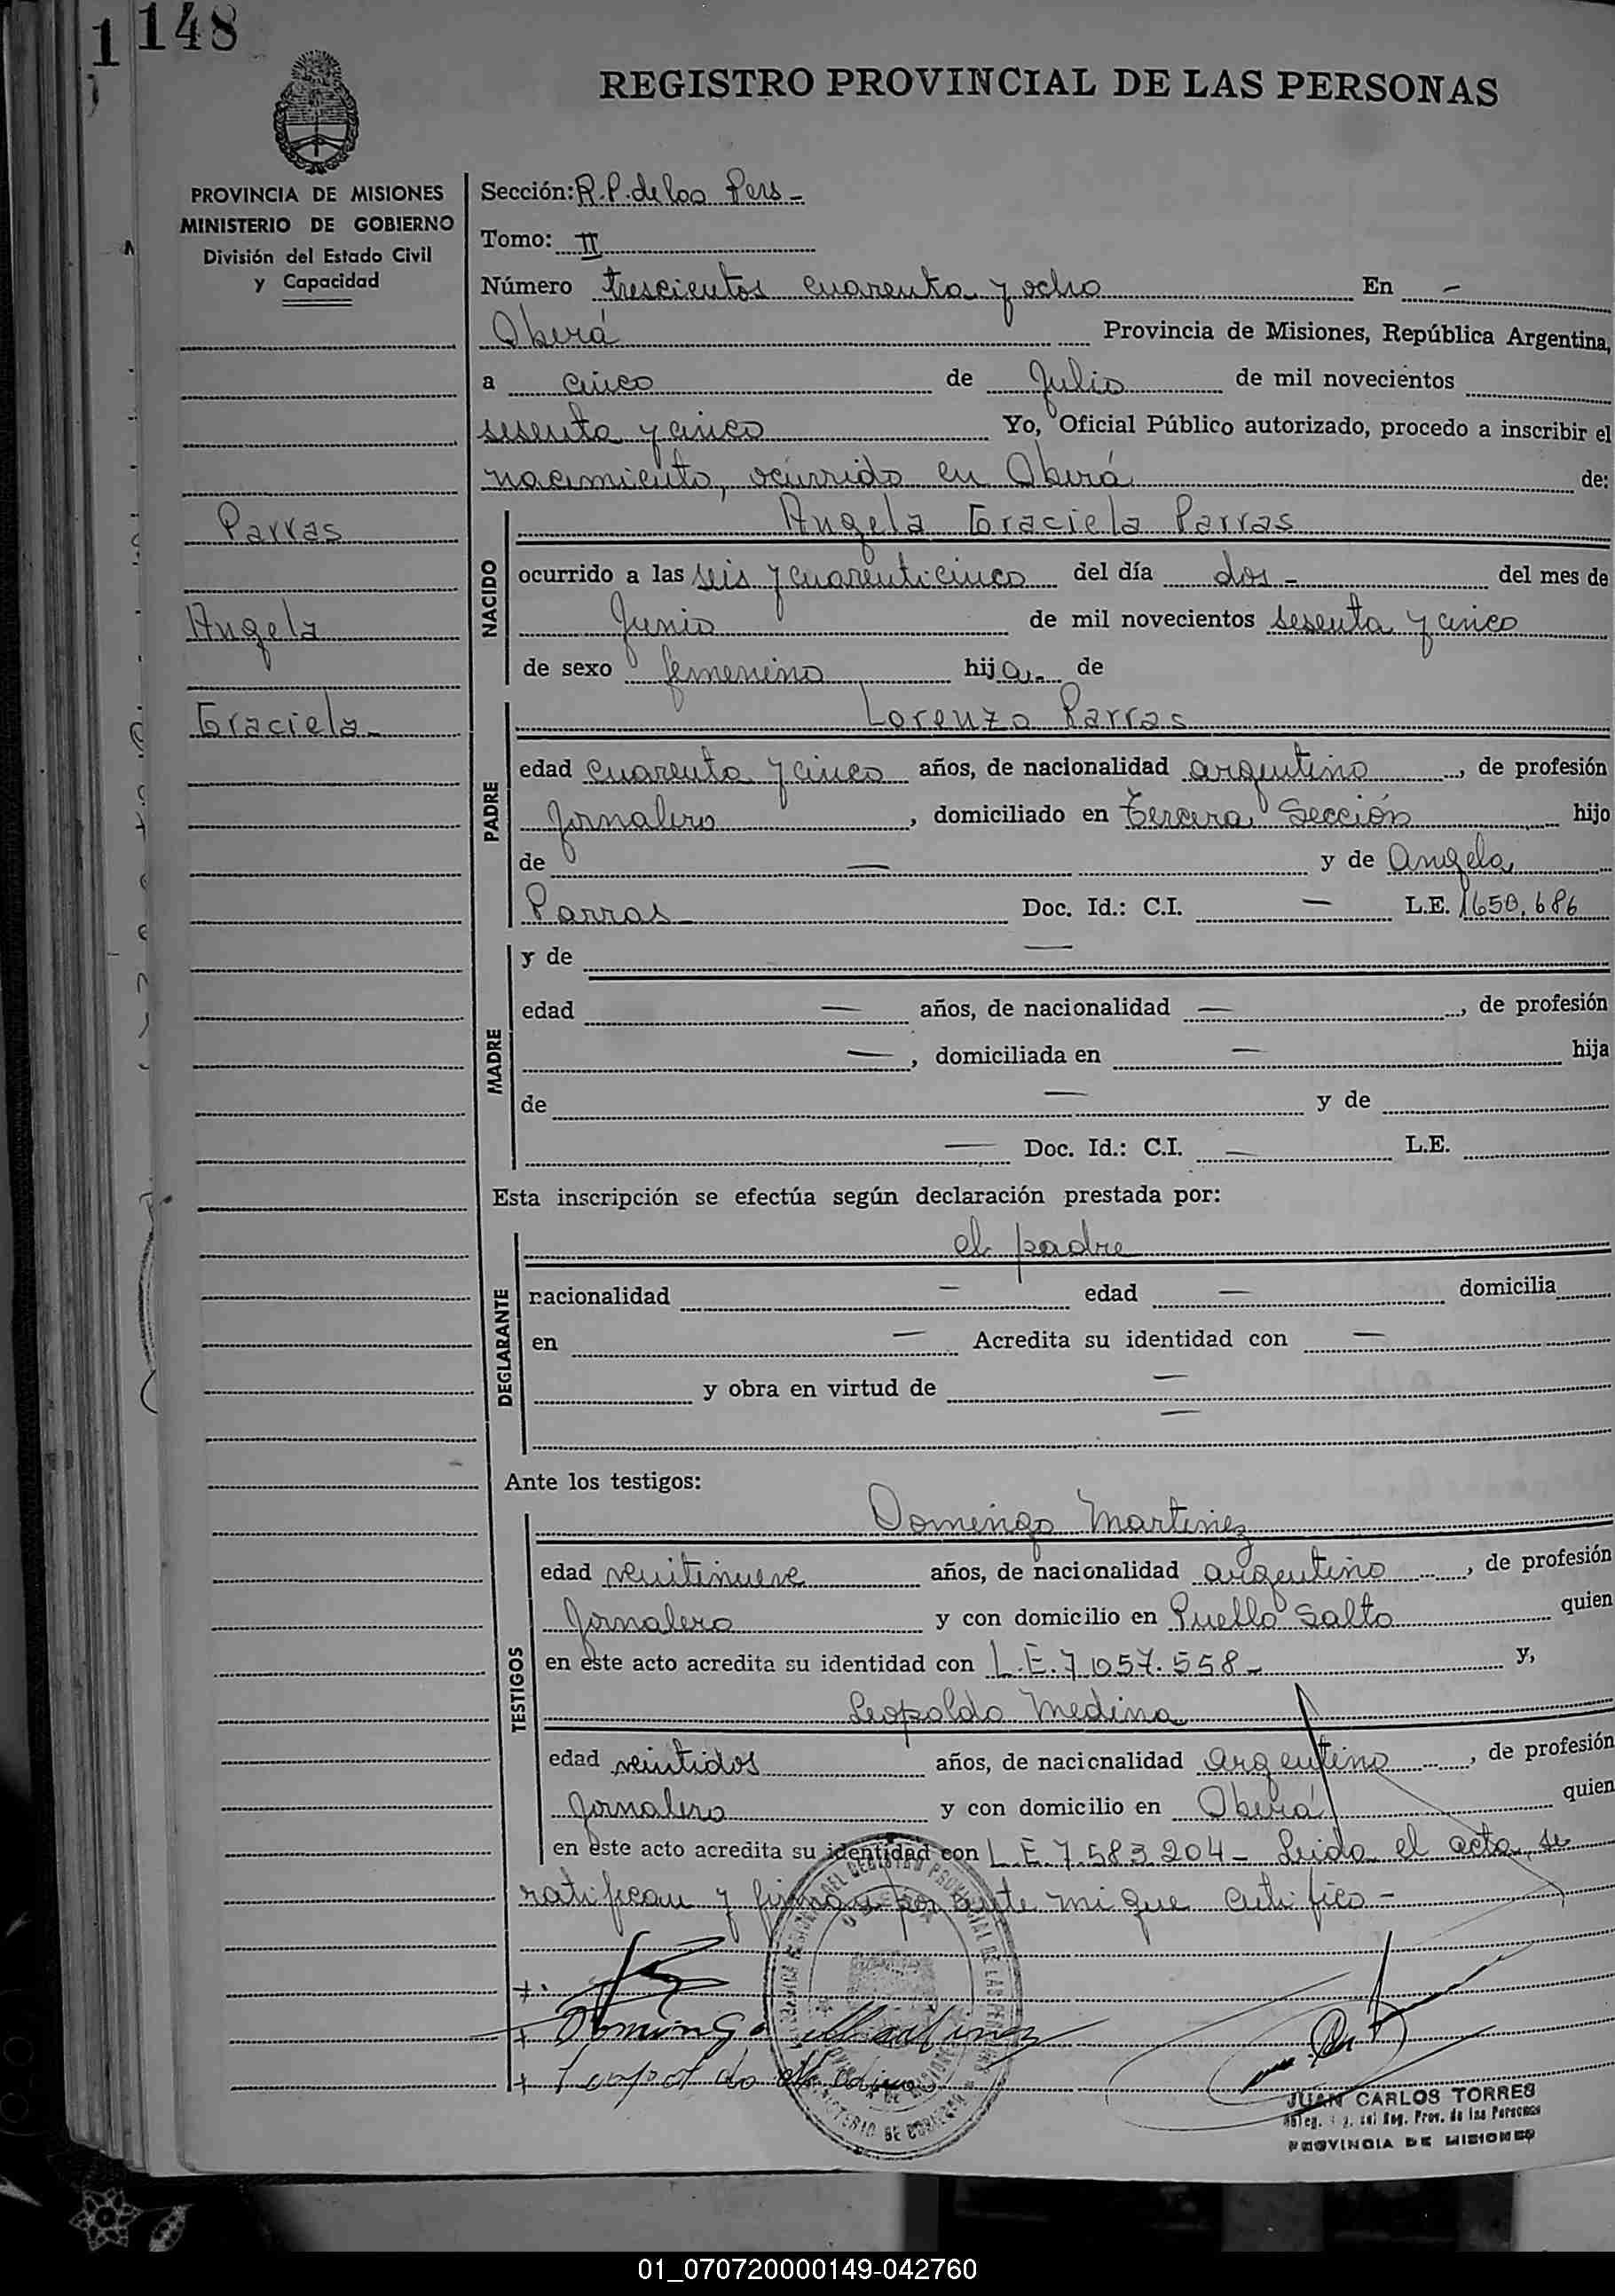 1 148
REGISTRO PROVINCIAL DE LAS PERSONAS
PROVINCIA DE MISIONES
MINISTERIO DE GOBIERNO
División del Estado Civil
y Capacidad
Parras
Angela
Graciela
Sección: R.P. de las Pers -
Tomo: II
Número trescientos cuarenta y ocho En -
Oberá Provincia de Misiones, República Argentina,
a cinco de Julio de mil novecientos
sesenta y cinco Yo, Oficial Público autorizado, procedo a inscribir el
nacimiento, ocurrido en Oberá de:
NACIDO
Angela Graciela Parras
ocurrido a las seis y cuarenticinco del día dos - del mes de
Junio de mil novecientos sesenta y cinco
de sexo femenino hija.- de
PADRE
Lorenzo Parras
edad cuarenta y cinco años, de nacionalidad argentino, de profesión
Jornalero, domiciliado en Tercera Sección hijo
de — y de Angela
Parras Doc. Id.: C.I. — L.E. 1650.686
MADRE
y de —
edad — años, de nacionalidad —, de profesión
—, domiciliada en — hija
de — y de
— Doc. Id.: C.I. — L.E.
Esta inscripción se efectúa según declaración prestada por:
DEGLARANTE
el padre
nacionalidad — edad — domicilia
en — Acredita su identidad con —
y obra en virtud de —
—
Ante los testigos:
TESTIGOS
Domingo Martinez
edad veintinueve años, de nacionalidad argentino, de profesión
Jornalero y con domicilio en Puello Salto quien
en este acto acredita su identidad con L.E. 7.057.558- y,
Leopoldo Medina
edad veintidos años, de nacionalidad argentino, de profesión
Jornalero y con domicilio en Oberá quien
en este acto acredita su identidad con L.E. 7.583.204 - Leida el acta, se
ratifican y firman por ante mi que certifico -
+ Domingo Martinez
+ Leopoldo Medina
JUAN CARLOS TORRES
Reg. Prov. de las Personas
PROVINCIA DE MISIONES
01_070720000149-042760